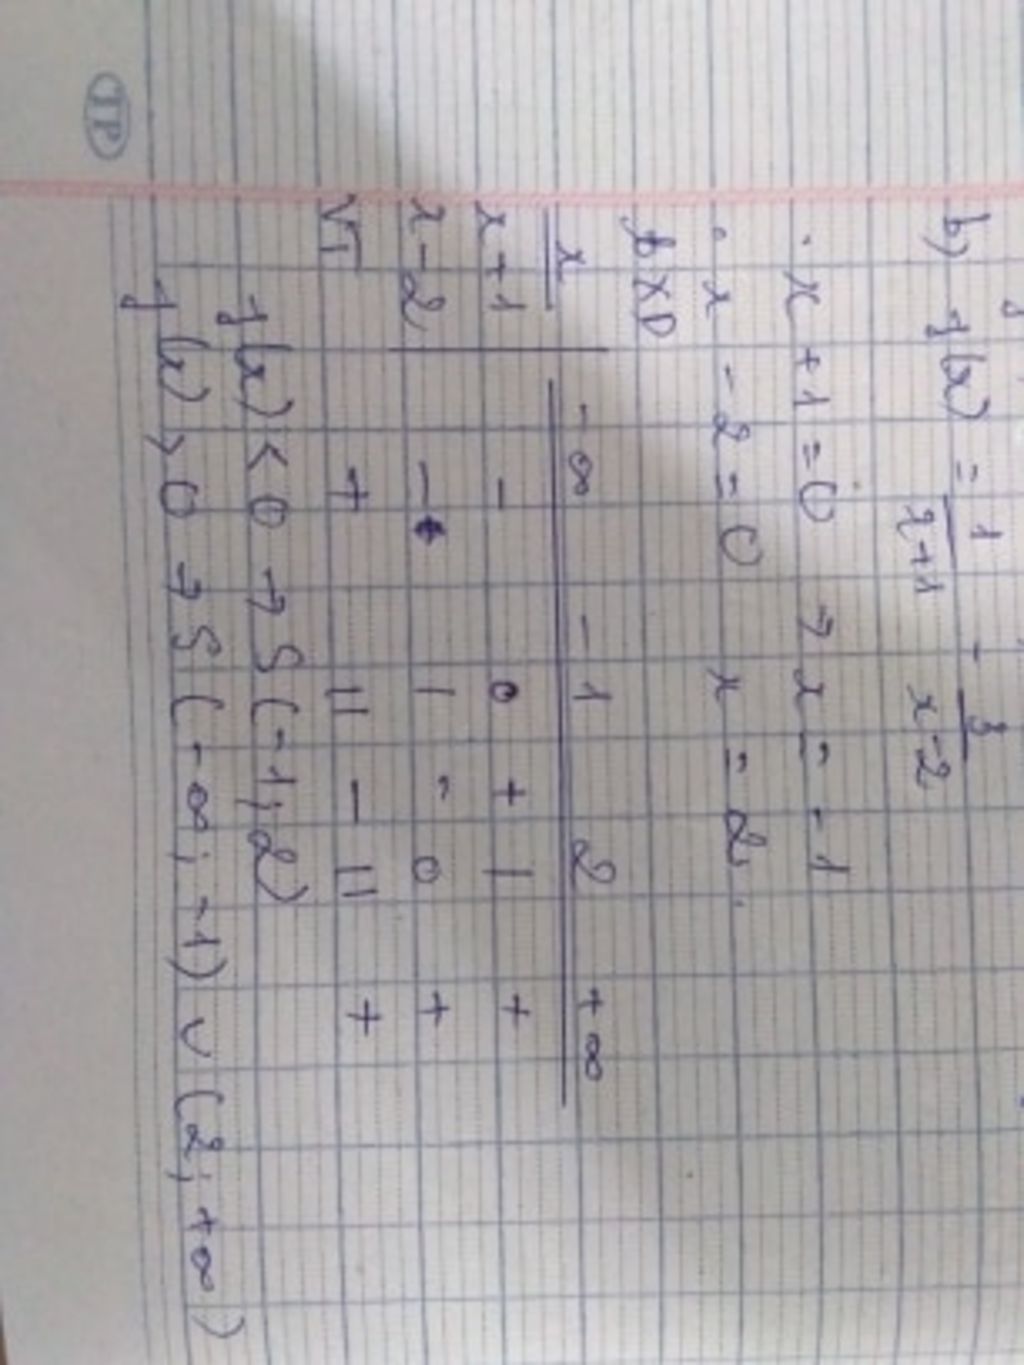 b) f(x) = 1/(x+1) - 3/(x-2)
· x + 1 = 0 → x = -1
· x - 2 = 0 x = 2.
BXD
x -∞ -1 2 +∞
x+1 - 0 + | +
x-2 - | - 0 +
VT + || - || +
f(x) < 0 → S (-1; 2)
f(x) > 0 → S (-∞; -1) ∪ (2; +∞)
TP